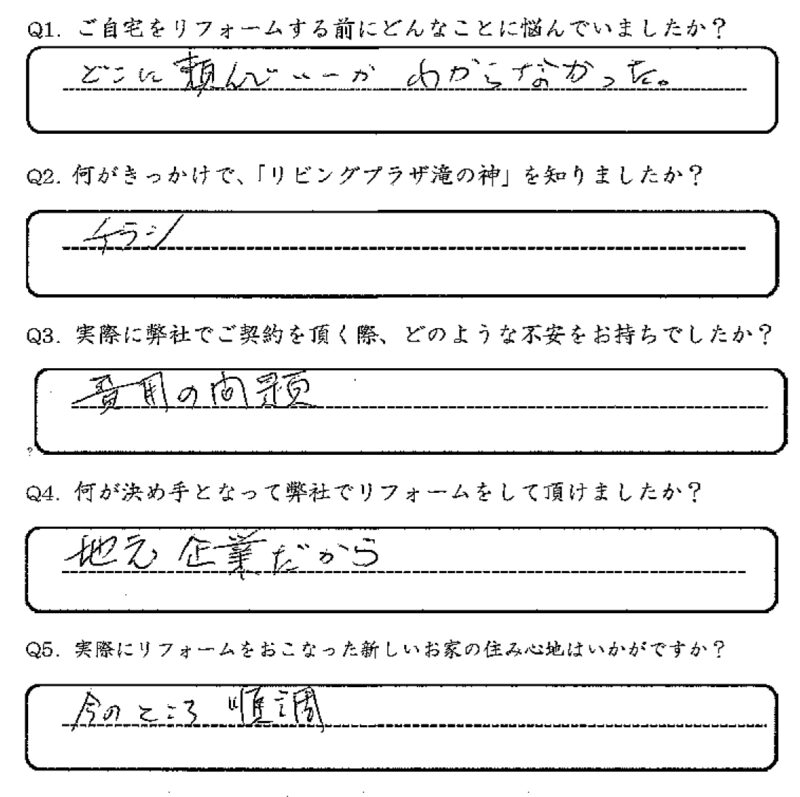 Q1. ご自宅をリフォームする前にどんなことに悩んでいましたか？
どこに頼んでいーか わからなかった。
Q2. 何がきっかけで、「リビングプラザ滝の神」を知りましたか？
チラシ
Q3. 実際に弊社でご契約を頂く際、どのような不安をお持ちでしたか？
費用の問題
?
Q4. 何が決め手となって弊社でリフォームをして頂けましたか？
地元企業だから
Q5. 実際にリフォームをおこなった新しいお家の住み心地はいかがですか？
今のところ 順調